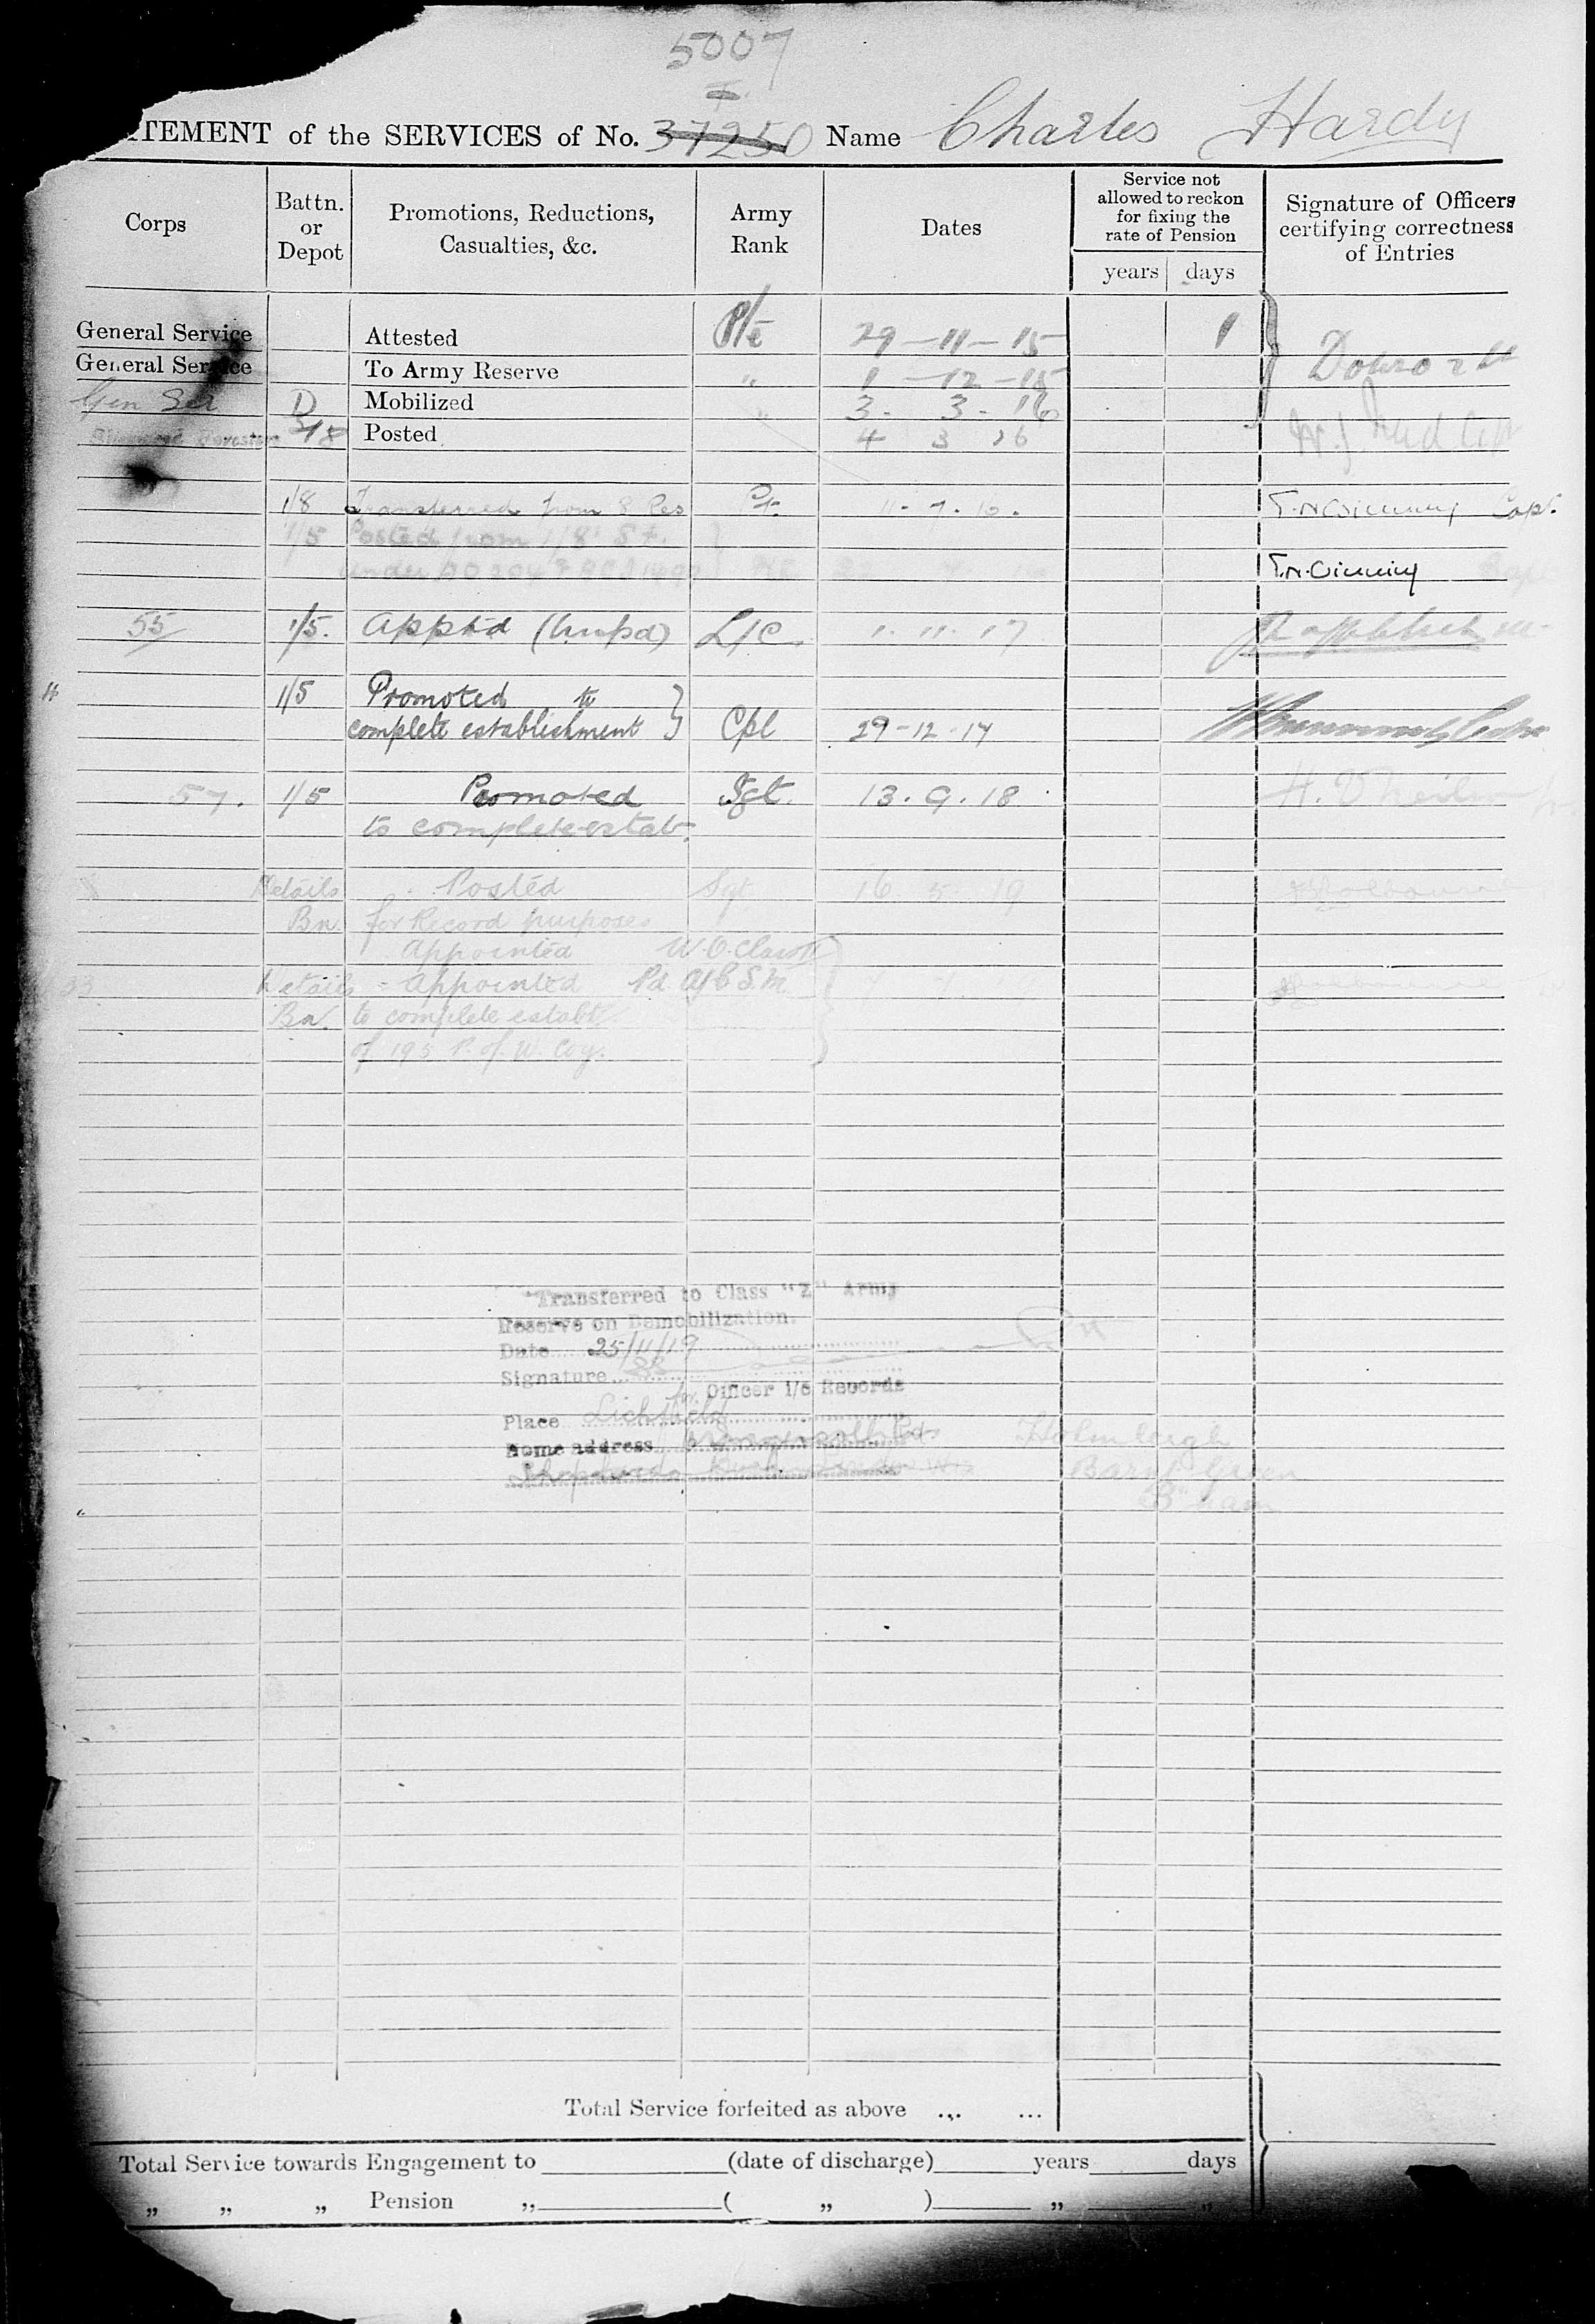 5007
TEMENT of the SERVICES of No. 37250 Name Charles Hardy
Corps
Battn. or Depot
Promotions, Reductions, Casualties, &c.
Army Rank
Dates
Service not allowed to reckon for fixing the rate of Pension
years days
Signature of Officers certifying correctness of Entries
General Service Attested Pte 29-11-15 1
General Service To Army Reserve " 1-12-15
Gen Ser D Mobilized " 3. 3. 16
Posted 4 3 16
1/8 Transferred from 8 Res Pt. Capt.
1/5 Posted from 1/8
under
55 1/5. Appt'd (Unpd) L/C. 1. 11. 17
1/5 Promoted to
complete establishment } Cpl 29-12-17
57. 1/5 Promoted Sgt. 13. 9. 18
to complete estab.
Details Posted Sgt 16. 5. 19
Bn. for Record purposes
Appointed W.O. Class II
Details Appointed Pd A/C.S.M.
Bn. to complete establt
of 193 P. of W. Coy.
"Transferred to Class "Z" Army
Reserve on Demobilization.
Date 25/11/19
Signature
for Officer i/c Records
Place Lichfield
Home address Holmleigh
Shepherds Bush London W12 Barnt Green
B'ham
Total Service forfeited as above ... ...
Total Service towards Engagement to (date of discharge) years days
" " " Pension " ( " ) " "